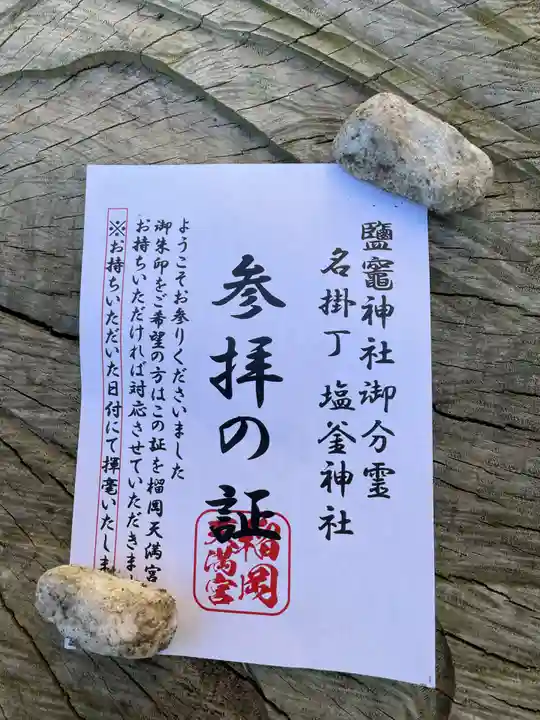 鹽竈神社御分霊
名掛丁 塩釜神社
参拝の証
榴岡
天満宮
ようこそお参りくださいました
御朱印をご希望の方はこの証を榴岡天満宮
お持ちいただければ対応させていただきま
※お持ちいただいた日付にて揮毫いたしま